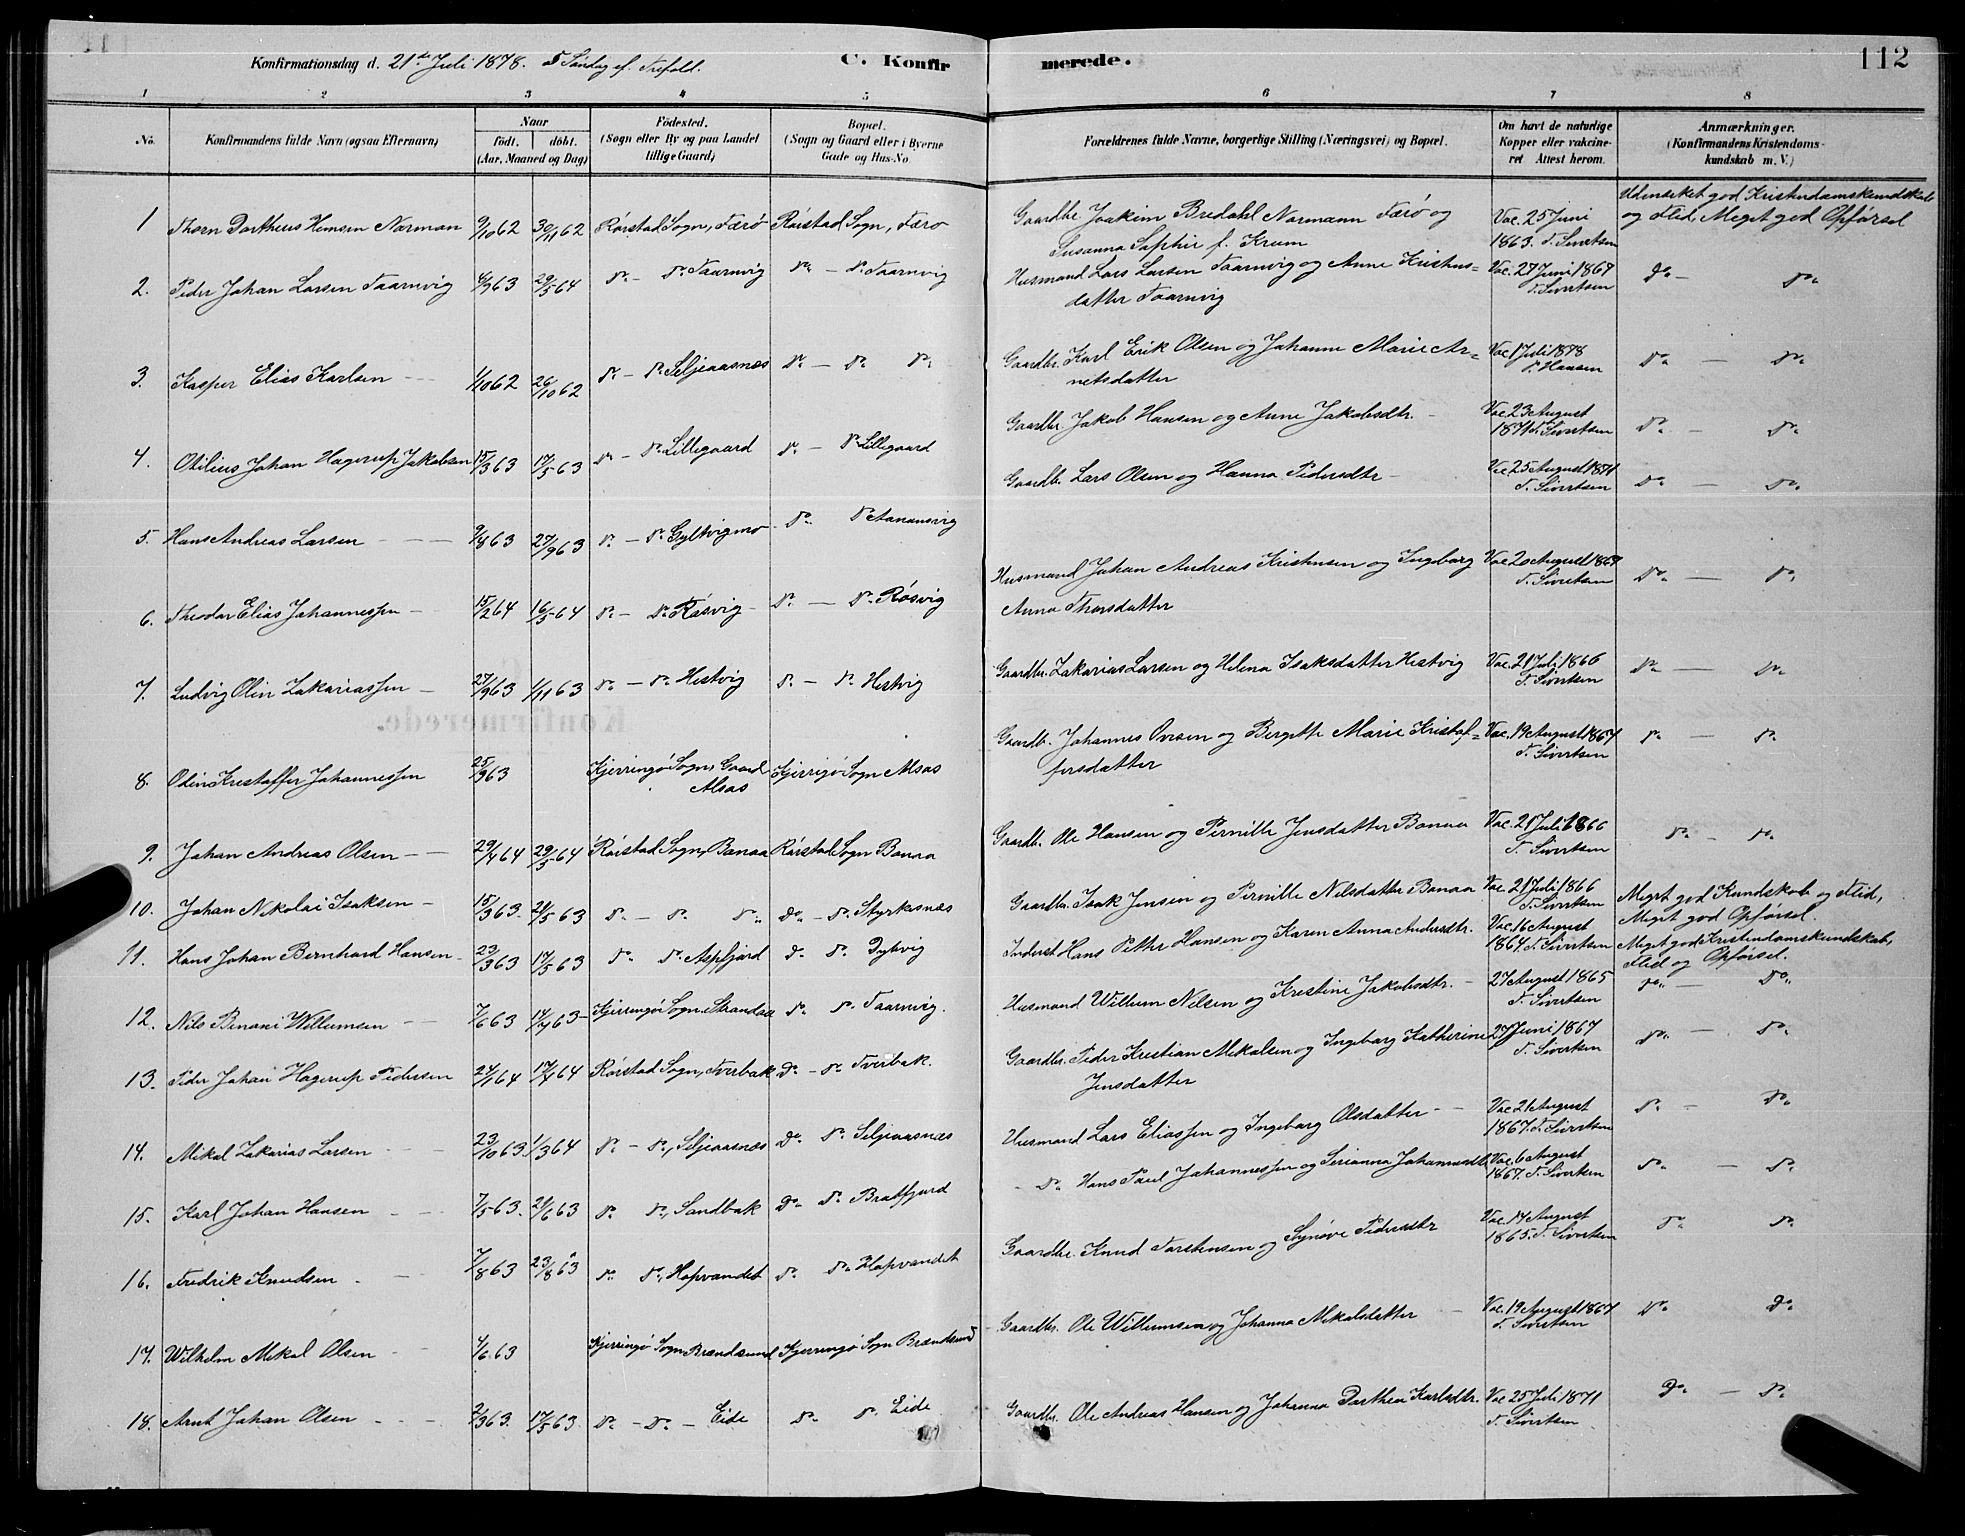 112
Konfirmationsdag d. 21de Juli 1878. 5 Søndag ef. Trefold.
C. Konfirmerede.
1 2 3 4 5 6 7 8
No. Konfirmandens fulde Navn (ogsaa Efternavn) Naar født. døbt. (Aar, Maaned og Dag) Födested. (Sogn eller By og paa Landet tillige Gaard) Bopæl. (Sogn og Gaard eller i Byerne Gade og Hus-No. Forældrenes fulde Navne, borgerlige Stilling (Næringsvei) og Bopæl. Om havt de naturlige Kopper eller vakcineret Attest herom. Anmærkninger. (Konfirmandens Kristendomskundskab m. V.)
1 Thorn Dortheus Hemsen Norman 9/10 62 30/11 62 Rörstad Sogn, Færö Rörstad Sogn, Færö Gaardbr. Joakim Bredahl Normann Færö og
Susanna Saphir f. Krum Vac. 25 Juni 1863. T. Sivertsen Udmærket god Kristendomskundskab og Flid, Meget god Opførsel
2. Peder Johan Larsen Taarnvig 6/9 63 29/5 64 Do - Do Taarnvig Do - Do Taarnvig Husmand Lars Larsen Taarnvig og Anne Kristens=
datter Taarnvig Vac. 27 Juni 1867 T. Sivertsen Do - Do
3. Kasper Elias Karlsen 1/10 62 26/10 62 Do - Do Seljeaasnæs Do - Do Do Gaardbr. Karl Erik Olsen og Johanne Marie Ar=
netsdatter Vac 1 Juli 1878 P. Hansen Do - Do
4. Otilius Johan Hagerup Jakobsen 15/3 63 17/5 63 Do - Do Lillegaard Do - Do Lillegaard Gaardbr. Jakob Hansen og Anne Jakobsdtr. Vac. 23 August 1871 T. Sivertsen Do - Do
5. Hans Andreas Larsen 9/8 63 27/9 63 Do - Do Gyltvigmo Do Do Aanonsvig Gaardbr. Lars Olsen og Hanna Pedersdtr Vac. 25 August 1871 T. Sivertsen Do - Do
6. Theodor Elias Johannessen 15/2 64 16/5 64 Do - Do Røsvig Do - Do Røsvig Husmand Johan Andreas Kristensen og Ingeborg
Anna Thorsdatter Vac. 20 August 1867 T. Sivertsen Do - Do
7. Ludvig Olin Zakariassen 27/9 63 1/11 63 Do - Do Hestvig Do - Do Hestvig Gaardbr. Zakarias Larsen og Helena Isaksdatter Hestvig Vac. 21 Juli 1866 T. Sivertsen Do - Do
8. Olin Krestoffer Johannessen 25/9 63 Kjerringö Sogn, Gaard Alsos Kjerrigö Sogn Alsos Gaardb. Johannes Ovesen og Birgitte Marie Kristof=
fersdatter Vac. 19 August 1867 T. Sivertsen Do - Do
9. Johan Andreas Olsen 29/4 64 29/5 64 Rörstad Sogn, Bonaa Rörstad Sogn Bonaa Gaardb. Ole Hansen og Pernille Jensdatter Bonaa Vac. 21 Juli 1866 T. Sivertsen Do - Do
10. Johan Nikolai Isaksen 15/3 63. 24/5 63 Do - Do Do Do - Do Styrkesnæs Gaardbr. Isak Jensen og Pernille Nilsdatter Bonaa Vac. 21 Juli 1866 T. Sivertsen Meget god Kundskab og Flid, Meget god Opførsel.
11. Hans Johan Bernhard Hansen 23/3 63 17/5 63 Do Do Aspfjord Do Do Dybvig Inderst Hans Petter Hansen og Karen Anna Andersdtr. Vac. 16 August 1864. T. Sivertsen Meget god Kristendomskundskab, Flid og Opførsel.
12. Nils Benoni Willumsen 7/6 63 14/7 63 Kjerringö Sogn Strandaa Do Do Taarnvig. Husmand Willum Nilsen og Kristine Jakobsdtr. 27 August 1865 T. Sivertsen Do - Do
13. Peder Johan Hagerup Pedersen 24/1 64 17/4 64 Rörstad Sogn, Tverbak Do - Do Tverbak. Gaardbr. Peder Kristian Mikalsen og Ingeborg Katherine
Jensdatter 27 Juni 1867 T. Sivertsen Do - Do
14. Mikal Zakarias Larsen 23/10 63 1/3 64 Do - Do, Seljeaasnæs Do Do Seljeaasnæs Husmand Lars Eliassen og Ingeborg Olsdatter Vac 21 August 1867. T. Sivertsen Do - Do
15. Karl Johan Hansen 7/5 63. 21/6 63 Do Do, Sandbak Do Do Bratfjord Do Hans Paul Johannessen og Serianna Johannesdtr Vac. 6 August 1867. T. Sivertsen Do - Do
16. Fredrik Knudsen 7/8 63 23/8 63 Do Do, Hopvandet Do Do Hopvandet Gaardbr. Knud Torstensen og Synöve Pedersdtr Vac. 14 August 1865. T. Sivertsen Do Do
17. Wilhelm Mikal Olsen 4/6 63 Kjerringö Sogn Brændsund Kjerringö Sogn Brændsund Gaardbr. Ole Willumsen og Johanna Mikalsdatter Vac. 19 August 1867 T. Sivertsen Do Do
18. Arnt Johan Olsen 2/3 63. 17/5 63 Do - Do - Eide Do Do Eide Gaardbr. Ole Andreas Hansen og Johanna Dorthea Karlsdtr. Vac 25 Juli 1871 T. Sivertsen Do - Do